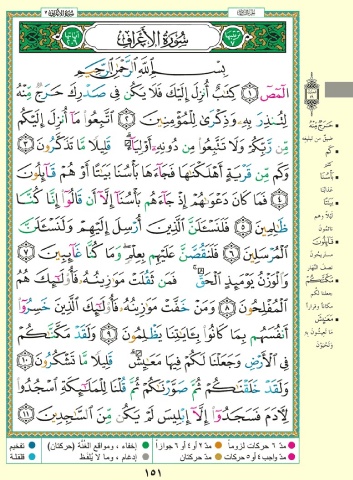 سُورَةُ الأَعْرَافِ
بِسْمِ اللَّهِ الرَّحْمَٰنِ الرَّحِيمِ
الٓمٓصٓ ١ كِتَٰبٌ أُنزِلَ إِلَيْكَ فَلَا يَكُن فِى صَدْرِكَ حَرَجٌ مِّنْهُ
لِتُنذِرَ بِهِۦ وَذِكْرَىٰ لِلْمُؤْمِنِينَ ٢ ٱتَّبِعُوا۟ مَآ أُنزِلَ إِلَيْكُم
مِّن رَّبِّكُمْ وَلَا تَتَّبِعُوا۟ مِن دُونِهِۦٓ أَوْلِيَآءَ ۗ قَلِيلًا مَّا تَذَكَّرُونَ ٣
وَكَم مِّن قَرْيَةٍ أَهْلَكْنَٰهَا فَجَآءَهَا بَأْسُنَا بَيَٰتًا أَوْ هُمْ قَآئِلُونَ
٤ فَمَا كَانَ دَعْوَىٰهُمْ إِذْ جَآءَهُم بَأْسُنَآ إِلَّآ أَن قَالُوٓا۟ إِنَّا كُنَّا
ظَٰلِمِينَ ٥ فَلَنَسْـَٔلَنَّ ٱلَّذِينَ أُرْسِلَ إِلَيْهِمْ وَلَنَسْـَٔلَنَّ
ٱلْمُرْسَلِينَ ٦ فَلَنَقُصَّنَّ عَلَيْهِم بِعِلْمٍ ۖ وَمَا كُنَّا غَآئِبِينَ ٧
وَٱلْوَزْنُ يَوْمَئِذٍ ٱلْحَقُّ ۚ فَمَن ثَقُلَتْ مَوَٰزِينُهُۥ فَأُو۟لَٰٓئِكَ هُمُ
ٱلْمُفْلِحُونَ ٨ وَمَنْ خَفَّتْ مَوَٰزِينُهُۥ فَأُو۟لَٰٓئِكَ ٱلَّذِينَ خَسِرُوٓا۟
أَنفُسَهُم بِمَا كَانُوا۟ بِـَٔايَٰتِنَا يَظْلِمُونَ ٩ وَلَقَدْ مَكَّنَّٰكُمْ
فِى ٱلْأَرْضِ وَجَعَلْنَا لَكُمْ فِيهَا مَعَٰيِشَ ۗ قَلِيلًا مَّا تَشْكُرُونَ ١٠
وَلَقَدْ خَلَقْنَٰكُمْ ثُمَّ صَوَّرْنَٰكُمْ ثُمَّ قُلْنَا لِلْمَلَٰٓئِكَةِ ٱسْجُدُوا۟
لِءَادَمَ فَسَجَدُوٓا۟ إِلَّآ إِبْلِيسَ لَمْ يَكُن مِّنَ ٱلسَّٰجِدِينَ ١١
حَرَجٌ مِنْهُ
ضيق من تبليغه
كَمْ
كثير
بَأْسُنَا
عذابنا
بَيَاتًا
ليلاً وهم
نائمون
قَائِلُونَ
مستريحون
نصف النهار
مَكَّنَّاكُمْ
جعلنا لكم
مكاناً وقراراً
مَعَايِشَ
ما تعيشون به
وتحيون
مدّ ٦ حركات لزوماً مدّ ٢ أو ٤ أو ٦ جوازاً إخفاء، ومواقع الغُنَّة (حركتان) تفخيم
مدّ واجب ٤ أو ٥ حركات مدّ حركتان إدغام، وما لا يُلفظ قلقلة
١٥١